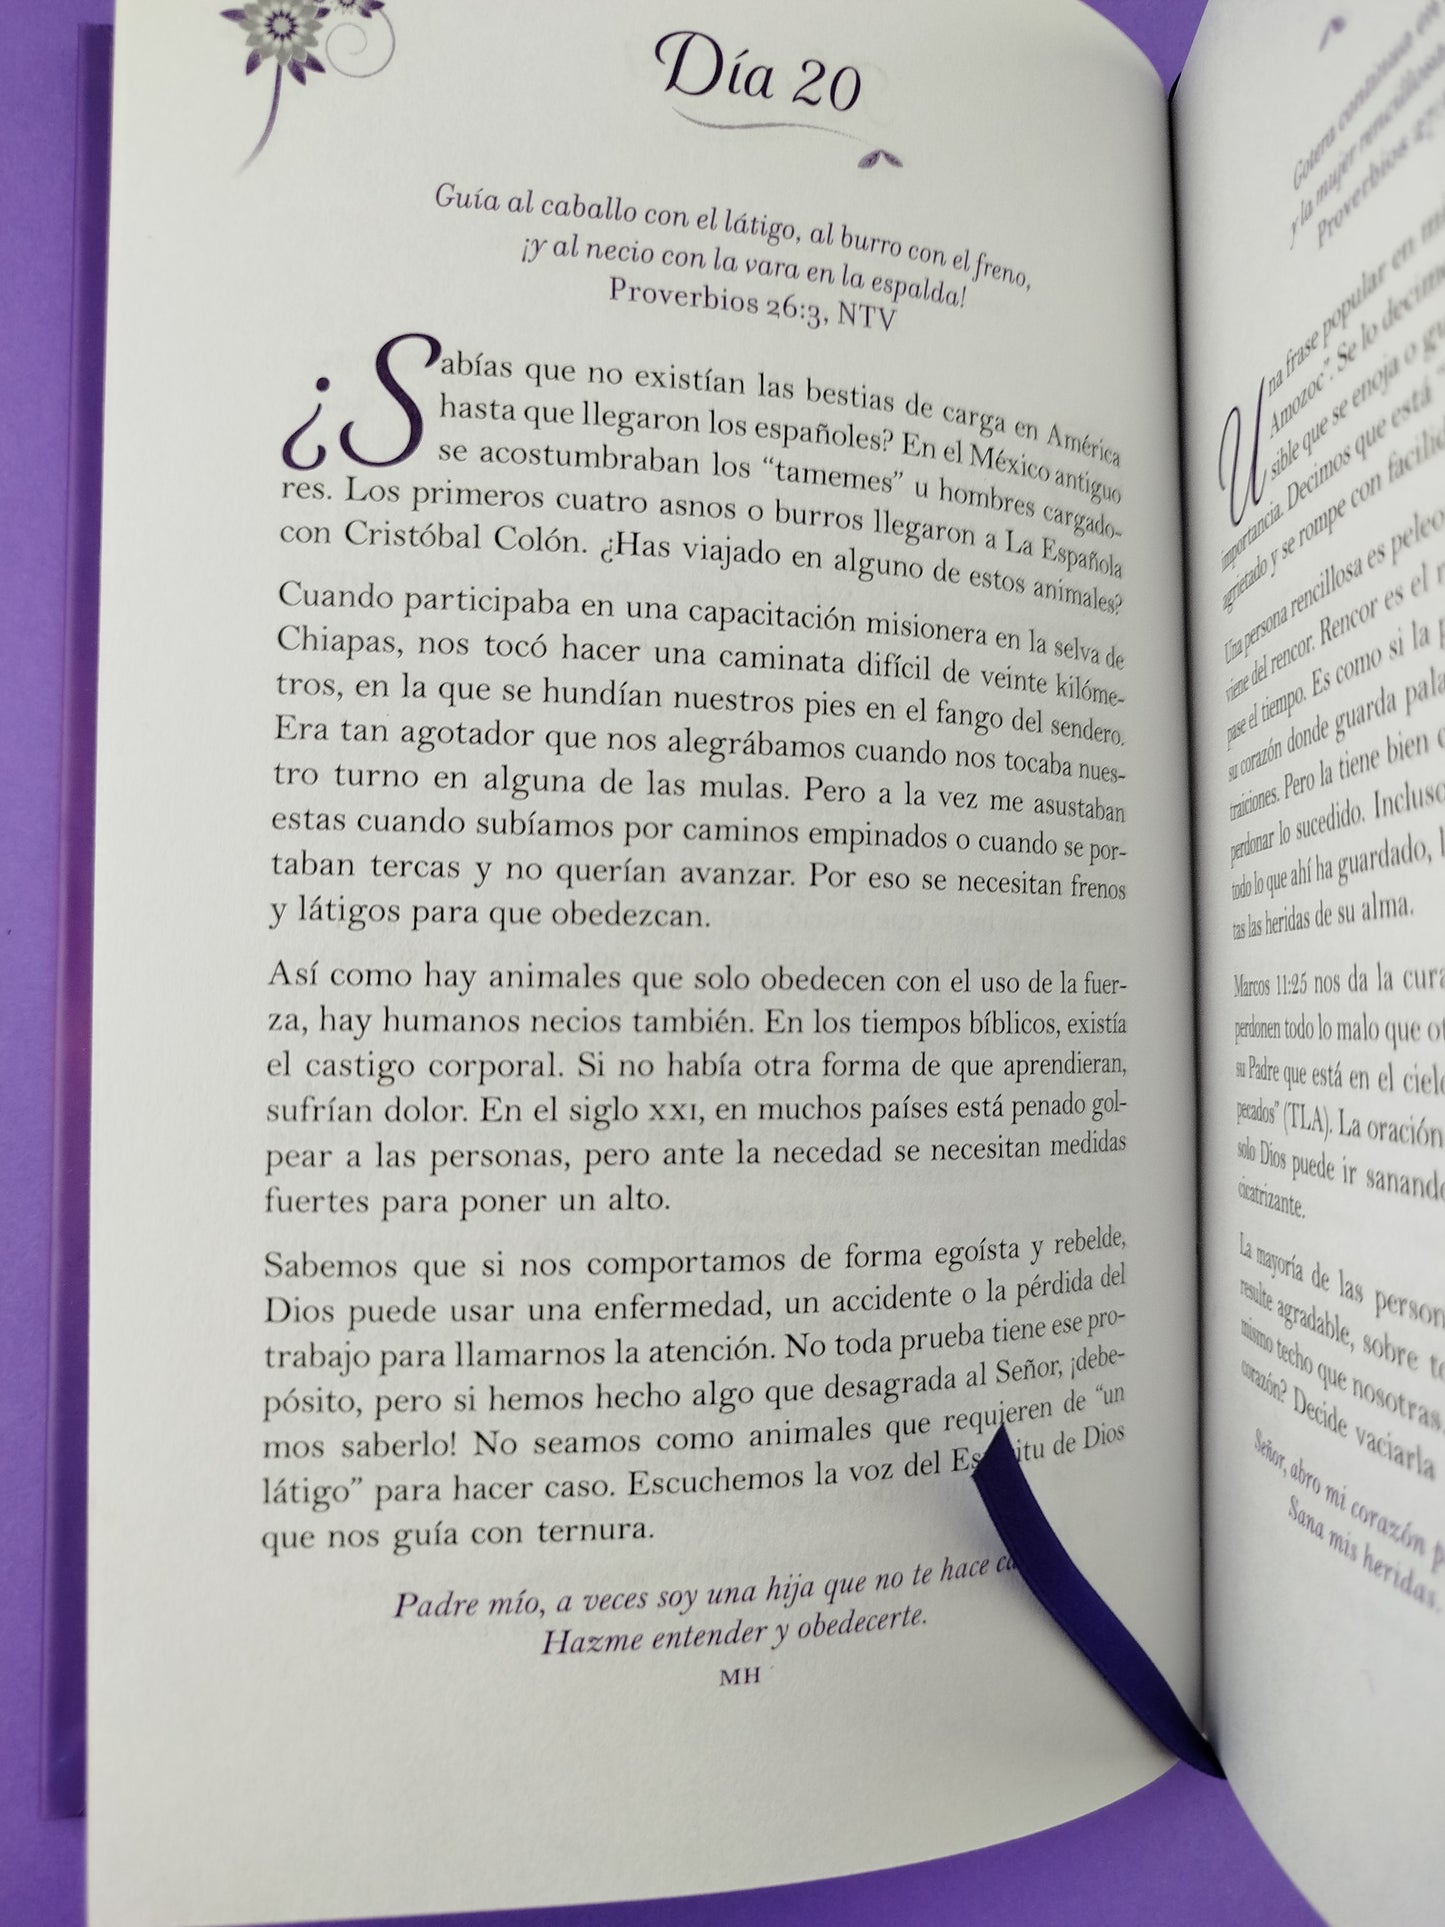 Día 20
Guía al caballo con el látigo, al burro con el freno,
¡y al necio con la vara en la espalda!
Proverbios 26:3, NTV
¿Sabías que no existían las bestias de carga en América
hasta que llegaron los españoles? En el México antiguo
se acostumbraban los “tamemes” u hombres cargado-
res. Los primeros cuatro asnos o burros llegaron a La Española
con Cristóbal Colón. ¿Has viajado en alguno de estos animales?
Cuando participaba en una capacitación misionera en la selva de
Chiapas, nos tocó hacer una caminata difícil de veinte kilóme-
tros, en la que se hundían nuestros pies en el fango del sendero.
Era tan agotador que nos alegrábamos cuando nos tocaba nues-
tro turno en alguna de las mulas. Pero a la vez me asustaban
estas cuando subíamos por caminos empinados o cuando se por-
taban tercas y no querían avanzar. Por eso se necesitan frenos
y látigos para que obedezcan.
Así como hay animales que solo obedecen con el uso de la fuer-
za, hay humanos necios también. En los tiempos bíblicos, existía
el castigo corporal. Si no había otra forma de que aprendieran,
sufrían dolor. En el siglo XXI, en muchos países está penado gol-
pear a las personas, pero ante la necedad se necesitan medidas
fuertes para poner un alto.
Sabemos que si nos comportamos de forma egoísta y rebelde,
Dios puede usar una enfermedad, un accidente o la pérdida del
trabajo para llamarnos la atención. No toda prueba tiene ese pro-
pósito, pero si hemos hecho algo que desagrada al Señor, ¡debe-
mos saberlo! No seamos como animales que requieren de “un
látigo” para hacer caso. Escuchemos la voz del Espíritu de Dios
que nos guía con ternura.
Padre mío, a veces soy una hija que no te hace
Hazme entender y obedecerte.
MH
Gotera
y la mujer rencillosa
Proverbios
Una frase popular en
Amozoc”. Se lo decimos
sible que se enoja o
importancia. Decimos que está
agrietado y se rompe con
Una persona rencillosa es
viene del rencor. Rencor es el
pase el tiempo. Es como si la
su corazón donde guarda
traiciones. Pero la tiene bien
perdonar lo sucedido. Incluso
todo lo que ahí ha guardado,
tas las heridas de su alma.
Marcos 11:25 nos da la
perdonen todo lo malo que
su Padre que está en el
pecados” (TLA). La oración
solo Dios puede ir
cicatrizante.
La mayoría de las
resulte agradable, sobre
mismo techo que nosotras.
corazón? Decide vaciarla
Señor, abro mi corazón
Sana mis heridas.